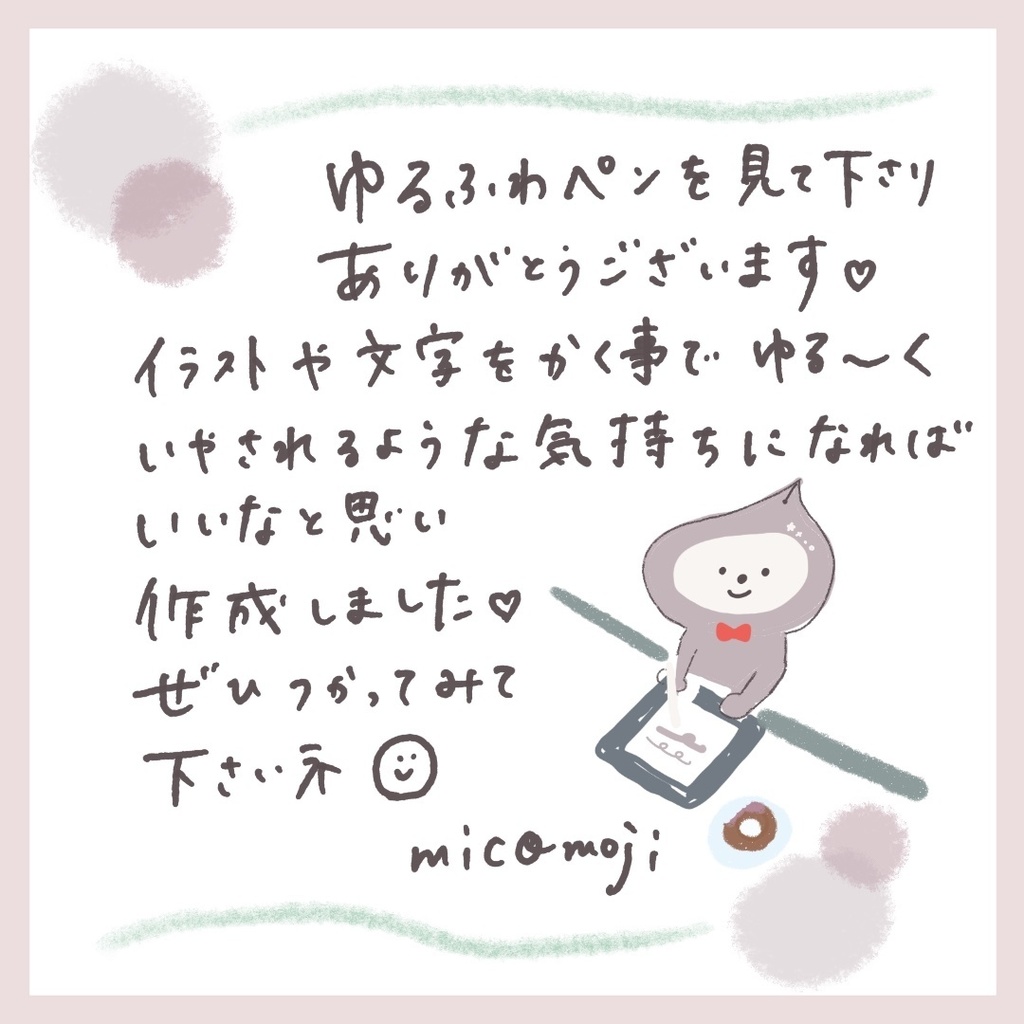 ゆるふわペンを見て下さり
ありがとうございます♡
イラストや文字をかく事でゆる〜く
いやされるような気持ちになれば
いいなと思い
作成しました♡
ぜひつかってみて
下さいネ
micomoji